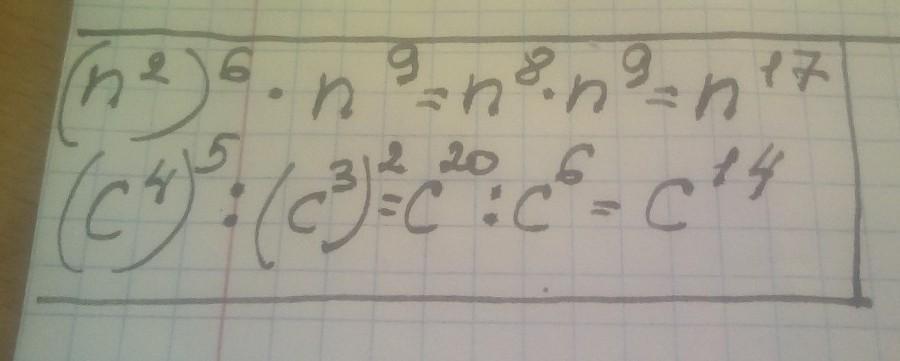 (n²)⁶ · n⁹ = n⁸ · n⁹ = n¹⁷
(c⁴)⁵ : (c³)² = c²⁰ : c⁶ = c¹⁴